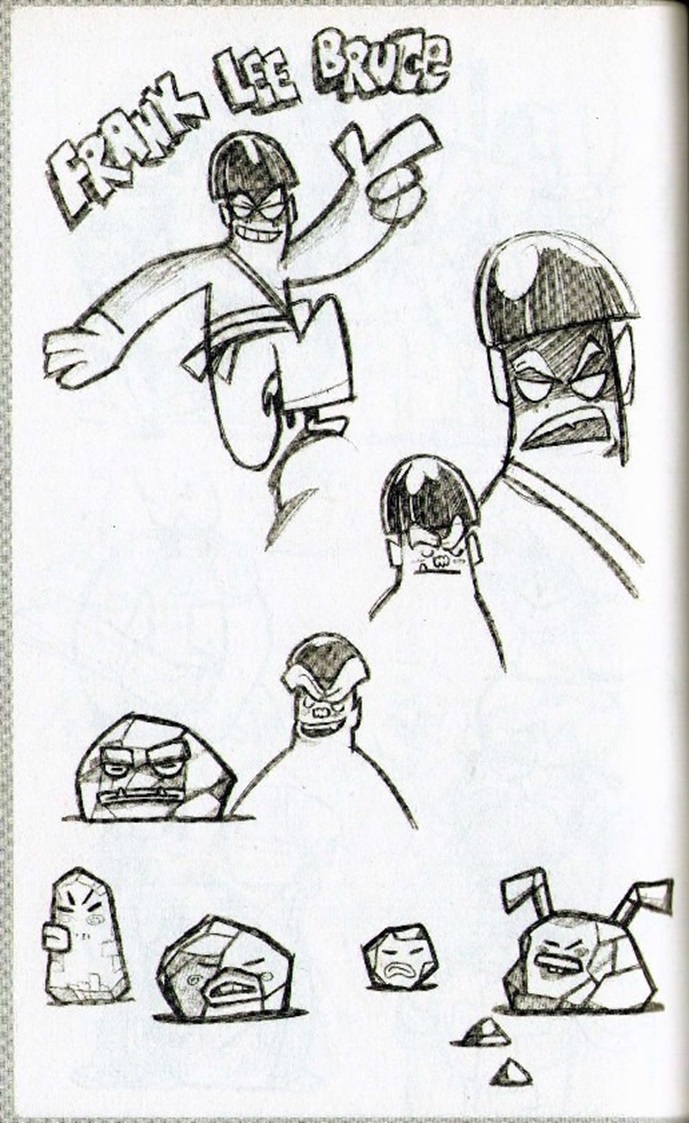 FRANK LEE BRUCE